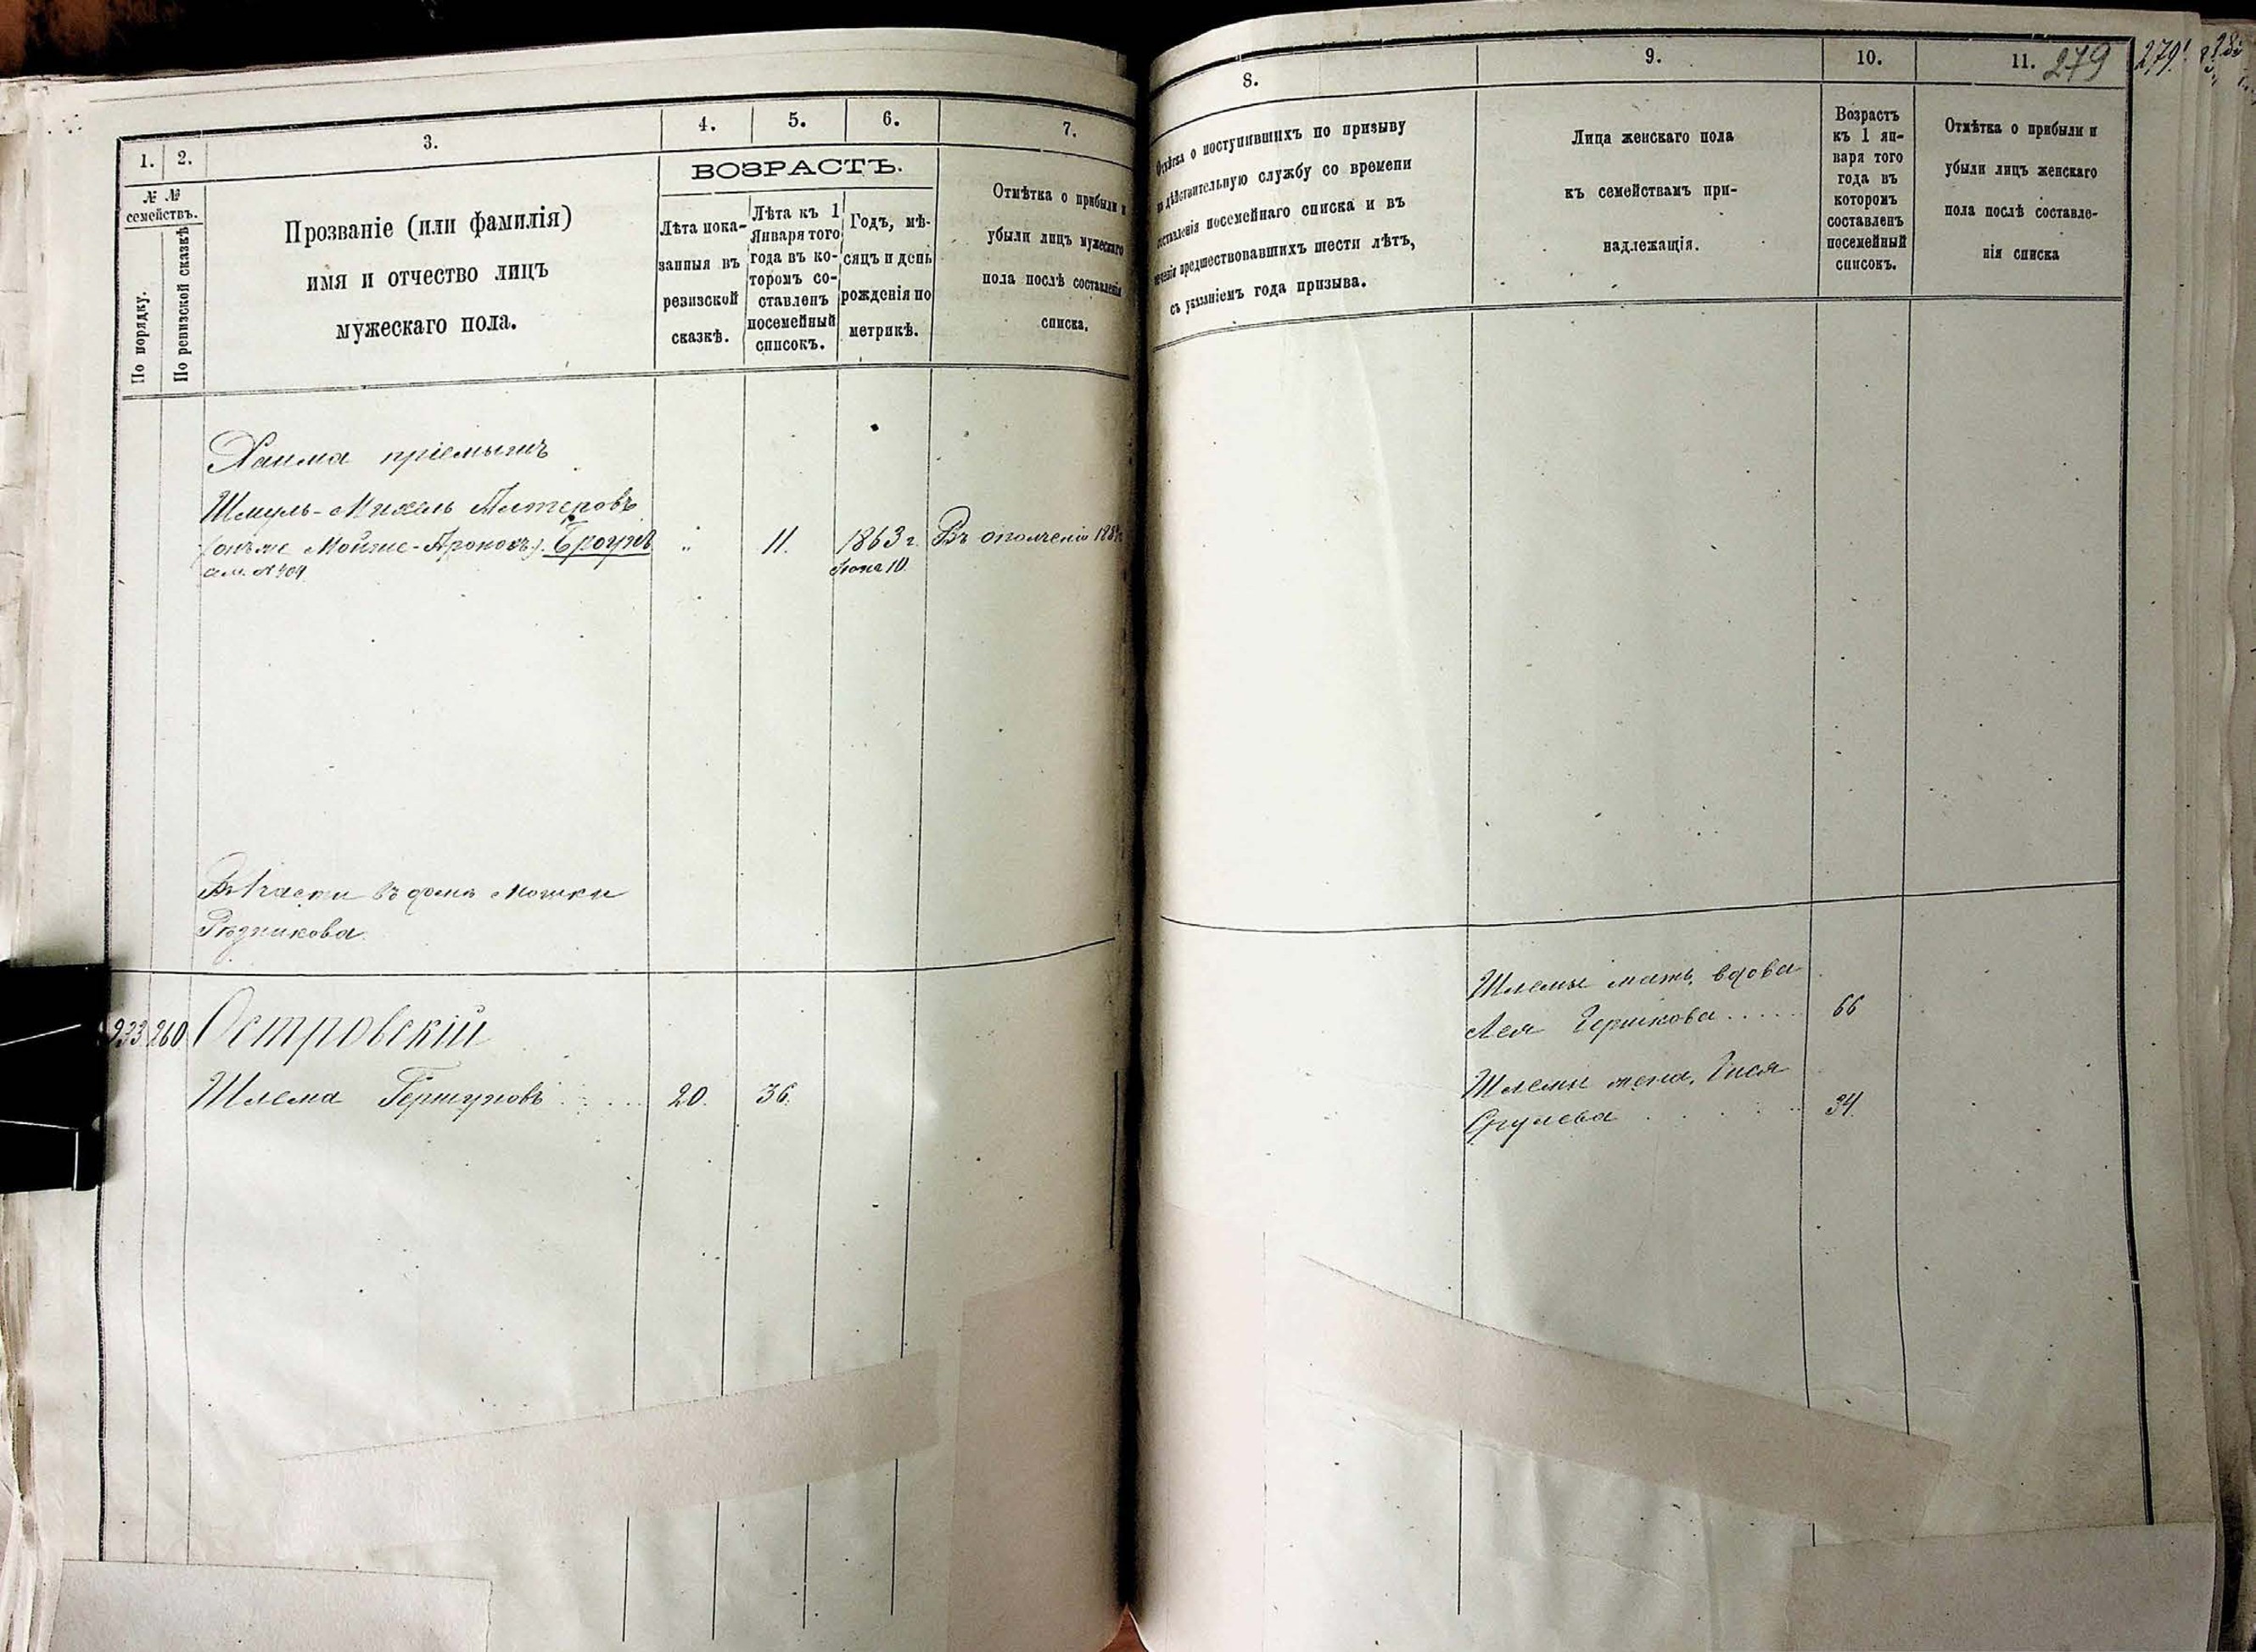 1.
2.
3.
4.
5.
6.
7.
№ №
семействъ.
По порядку.
По ревизской сказкѣ
Прозваніе (или фамилія)
имя и отчество лицъ
мужескаго пола.
ВОЗРАСТЪ.
Лѣта пока-
занныя въ
ревизской
сказкѣ.
Лѣта къ 1
Января того
года въ ко-
торомъ со-
ставленъ
посемейный
списокъ.
Годъ, мѣ-
сяцъ и день
рожденія по
метрикѣ.
Отмѣтка о прибыли и
убыли лицъ мужескаго
пола послѣ составленія
списка.
Хаима пріемышъ
Шмуль-Михель Алтеровъ
(онъ же Мойше-Ароновъ). Броунъ
" 11. 1863 г. Въ ополченіи
Іюня 10.
въ домѣ Мошки
Рѣзникова
933. 260. Островскій
Шлема Гершуновъ . . . . 20. 36.
8.
9.
10.
11.
279
279
Отмѣтка о поступившихъ по призыву
на дѣйствительную службу со времени
составленія посемейнаго списка и въ
теченіи предшествовавшихъ шести лѣтъ,
съ указаніемъ года призыва.
Лица женскаго пола
къ семействамъ при-
надлежащія.
Возрастъ
къ 1 ян-
варя того
года въ
которомъ
составленъ
посемейный
списокъ.
Отмѣтка о прибыли и
убыли лицъ женскаго
пола послѣ составле-
нія списка
Шлемы мать, вдова
Лея Гершкова . . . . . 66
Шлемы жена,
34.